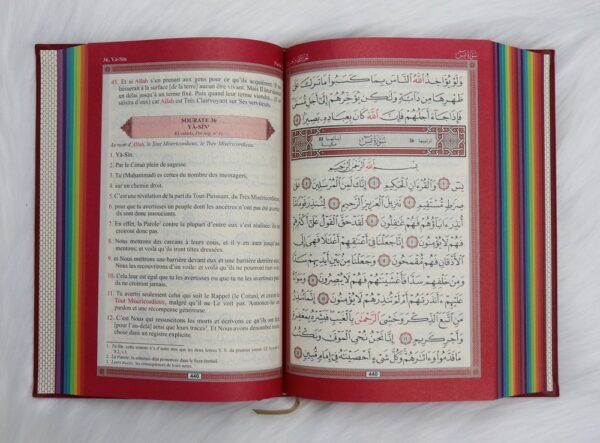 36. Yâ-Sîn
45. Et si Allah s'en prenait aux gens pour ce qu'ils acquièrent, Il ne
laisserait à la surface [de la terre] aucun être vivant. Mais Il leur donne
un délai jusqu'à un terme fixé. Puis quand leur terme viendra... (Il se
saisira d'eux) car Allah est Très Clairvoyant sur Ses serviteurs.
SOURATE 36
YÂ-SÎN
Au nom d'Allah, le Tout Miséricordieux, le Très Miséricordieux.
1. Yâ-Sîn.
2. Par le Coran plein de sagesse.
3. Tu (Muhammad) es certes du nombre des messagers,
4. sur un chemin droit.
5. C'est une révélation de la part du Tout-Puissant, du Très Miséricordieux,
6. pour que tu avertisses un peuple dont les ancêtres n'ont pas été avertis:
ils sont donc insouciants.
7. En effet, la Parole contre la plupart d'entre eux s'est réalisée: ils ne
croiront donc pas.
8. Nous mettrons des carcans à leurs cous, et il y en aura jusqu'aux
mentons; et voilà qu'ils iront têtes dressées.
9. et Nous mettrons une barrière devant eux et une barrière derrière eux;
Nous les recouvrirons d'un voile: et voilà qu'ils ne pourront rien voir.
10. Cela leur est égal que tu les avertisses ou que tu ne les avertisses pas:
ils ne croiront jamais.
11. Tu avertis seulement celui qui suit le Rappel (le Coran), et craint le
Tout Miséricordieux, malgré qu'il ne Le voit pas. Annonce-lui un
pardon et une récompense généreuse.
12. C'est Nous qui ressuscitons les morts et écrivons ce qu'ils ont fait
[pour l'au-delà] ainsi que leurs traces. Et Nous avons dénombré toute
chose dans un registre explicite.
440
سورة يس
وَلَوْ يُؤَاخِذُ اللَّهُ النَّاسَ بِمَا كَسَبُوا مَا تَرَكَ عَلَىٰ
ظَهْرِهَا مِن دَابَّةٍ وَلَٰكِن يُؤَخِّرُهُمْ إِلَىٰ أَجَلٍ مُّسَمًّى
فَإِذَا جَاءَ أَجَلُهُمْ فَإِنَّ اللَّهَ كَانَ بِعِبَادِهِ بَصِيرًا
سورة يس
بِسْمِ اللَّهِ الرَّحْمَٰنِ الرَّحِيمِ
يس وَالْقُرْآنِ الْحَكِيمِ إِنَّكَ لَمِنَ الْمُرْسَلِينَ عَلَىٰ
صِرَاطٍ مُّسْتَقِيمٍ تَنزِيلَ الْعَزِيزِ الرَّحِيمِ لِتُنذِرَ قَوْمًا مَّا
أُنذِرَ آبَاؤُهُمْ فَهُمْ غَافِلُونَ لَقَدْ حَقَّ الْقَوْلُ عَلَىٰ أَكْثَرِهِمْ
فَهُمْ لَا يُؤْمِنُونَ إِنَّا جَعَلْنَا فِي أَعْنَاقِهِمْ أَغْلَالًا فَهِيَ إِلَى
الْأَذْقَانِ فَهُم مُّقْمَحُونَ وَجَعَلْنَا مِن بَيْنِ أَيْدِيهِمْ سَدًّا
وَمِنْ خَلْفِهِمْ سَدًّا فَأَغْشَيْنَاهُمْ فَهُمْ لَا يُبْصِرُونَ
وَسَوَاءٌ عَلَيْهِمْ أَأَنذَرْتَهُمْ أَمْ لَمْ تُنذِرْهُمْ لَا يُؤْمِنُونَ إِنَّمَا تُنذِرُ
مَنِ اتَّبَعَ الذِّكْرَ وَخَشِيَ الرَّحْمَٰنَ بِالْغَيْبِ فَبَشِّرْهُ بِمَغْفِرَةٍ
وَأَجْرٍ كَرِيمٍ إِنَّا نَحْنُ نُحْيِي الْمَوْتَىٰ وَنَكْتُبُ
مَا قَدَّمُوا وَآثَارَهُمْ وَكُلَّ شَيْءٍ أَحْصَيْنَاهُ فِي إِمَامٍ مُّبِينٍ
440